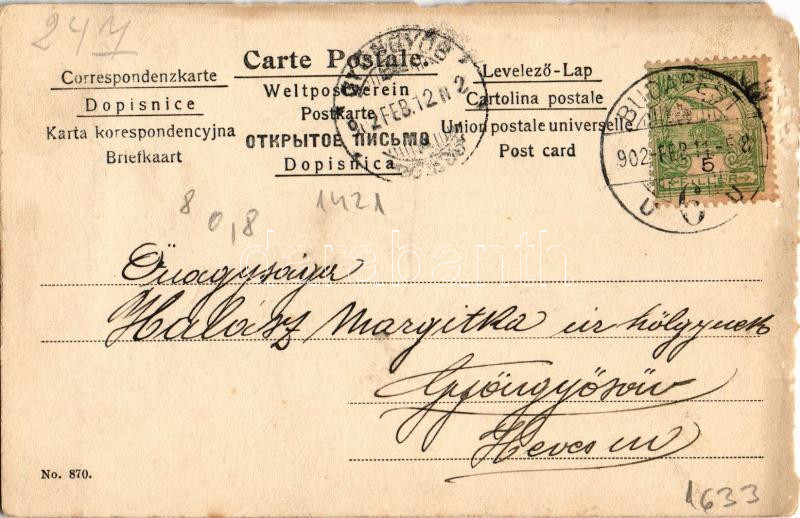 247
Carte Postale.
Correspondenzkarte
Dopisnice
Karta korespondencyjna
Briefkaart
Weltpostverein
Postkarte
ОТКРЫТОЕ ПИСЬМО
Dopisnica
Levelező-Lap
Cartolina postale
Union postale universelle
Post card
GYÖNGYÖS
902 FEB. 12 N 2
BUDAPEST
902 FEB. 11
6
5
8
0,8
1421
darabanth
Őnagysága
Halász Margitka úr hölgynek
Gyöngyösön
Heves m
No. 870.
1633